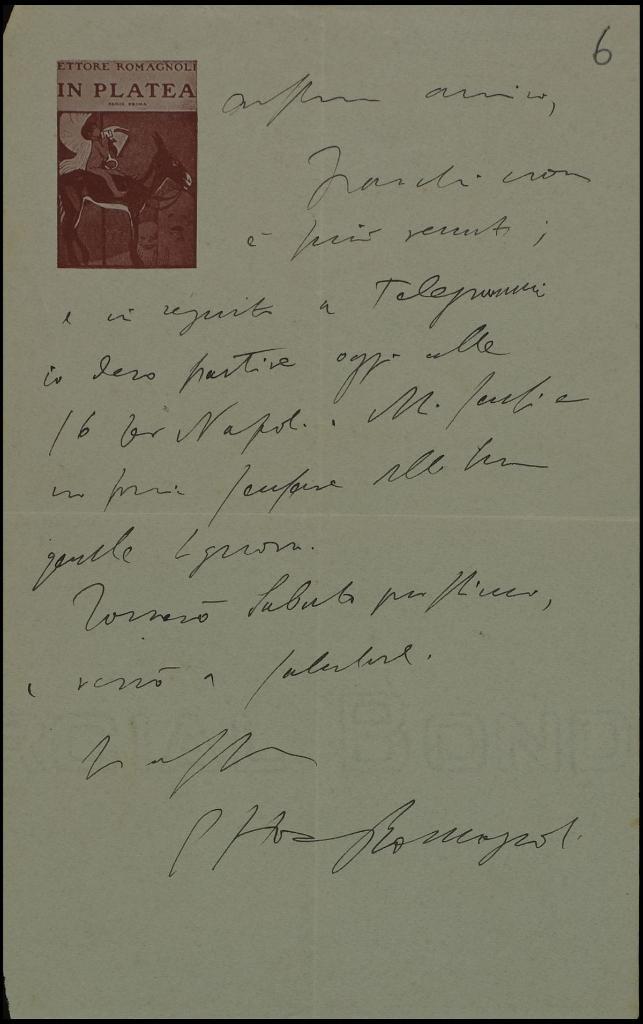 6
ETTORE ROMAGNOLI
IN PLATEA
SERIE PRIMA
amico,
non
è più venuto;
e in seguito a Telegrammi
io devo partire oggi alle
16 per Napoli. Mi scusi e
mi faccia scusare alla sua
gentile Signora.
Tornerò Sabato prossimo,
e verrò a salutarla.
Ettore Romagnoli